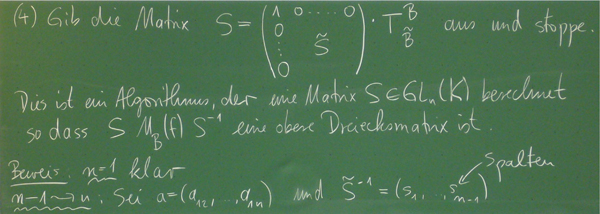 (4) Gib die Matrix S = ( 1 0 ..... 0 / 0 / ⋮ S̃ / 0 ) · T^B_B̃ aus und stoppe.
Dies ist ein Algorithmus, der eine Matrix S ∈ GL_n(K) berechnet
so dass S M_B(f) S^-1 eine obere Dreiecksmatrix ist.
Beweis: n=1 klar
spalten
n-1 → n: Sei a = (a_12, ..., a_1n) und S̃^-1 = (s_1, ..., s_n-1)